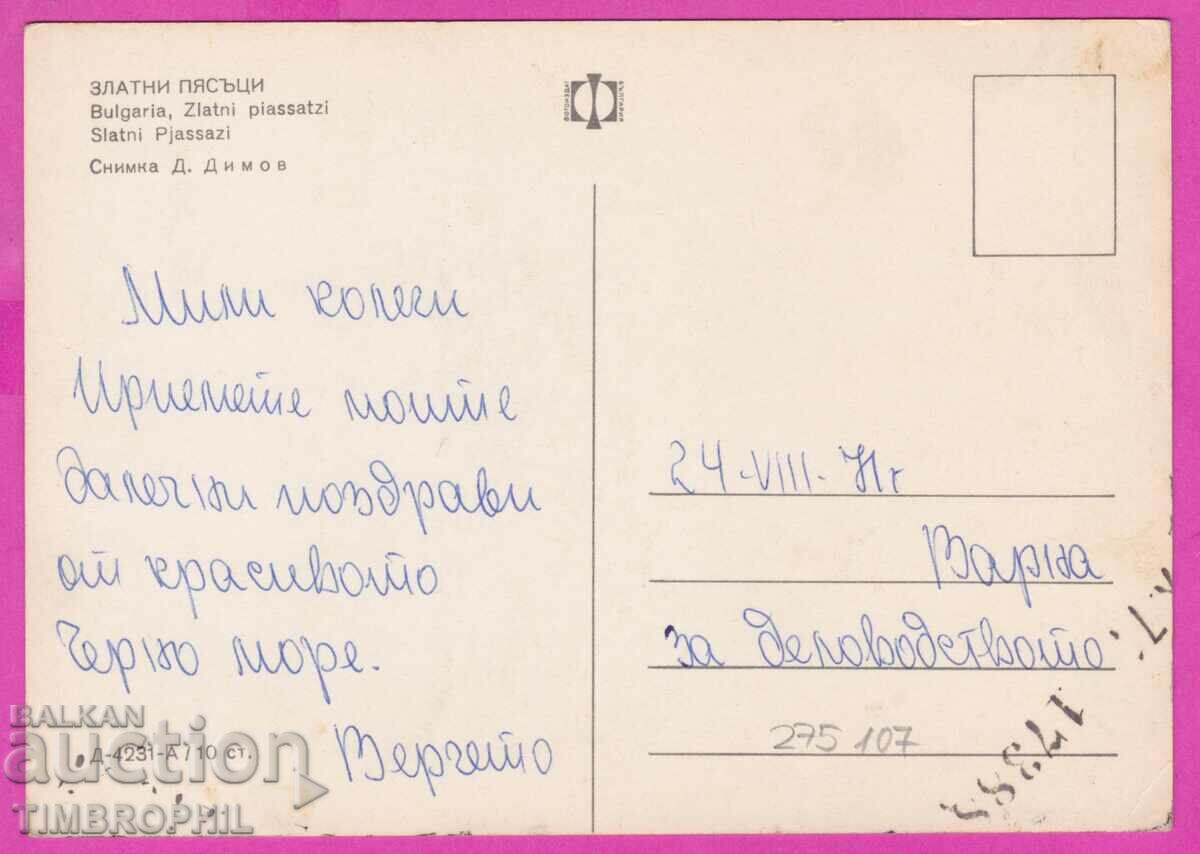 ЗЛАТНИ ПЯСЪЦИ
Bulgaria, Zlatni piassatzi
Slatni Pjassazi
Снимка Д. Димов
ФОТОИЗДАТ
БЪЛГАРИЯ
Мили колеги
Приемете моите
далечни поздрави
от красивото
Черно море.
Вергето
Д-4231-А / 10 ст.
24-VIII-71 г
Варна
за деловодството
275 107
BALKAN
auction
TIMBROPHIL